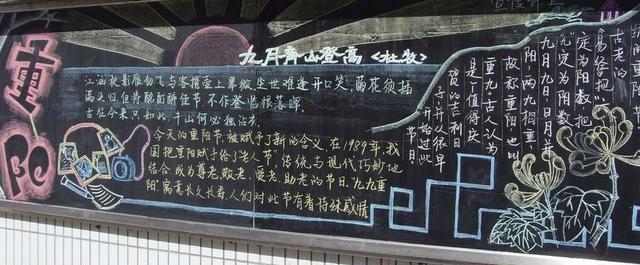 重阳
九月齐山登高 <杜牧>
江涵秋影雁初飞与客携壶上翠微尘世难逢开口笑,菊花须插
满头归但将酩酊酬佳节不作登临恨落晖,
古往今来只如此,牛山何必独沾衣
今天的重阳节,被赋予了新的含义,在1989年,我
国把重阳赋予给了"老人节",传统与现代巧妙地
结合,成为尊老,敬老,爱老,助老的节日,九九重
阳"寓意长久长寿,人们对此节有着特殊感情
古老的
《易经》把"六"
定为阴数,把
"九"定为阳数
九月九日,日月并
阳,两九相重,
故称重阳,也叫
重九,古人认为
是个值得庆
贺的吉利日
子,并从很早
开始过此
节日.